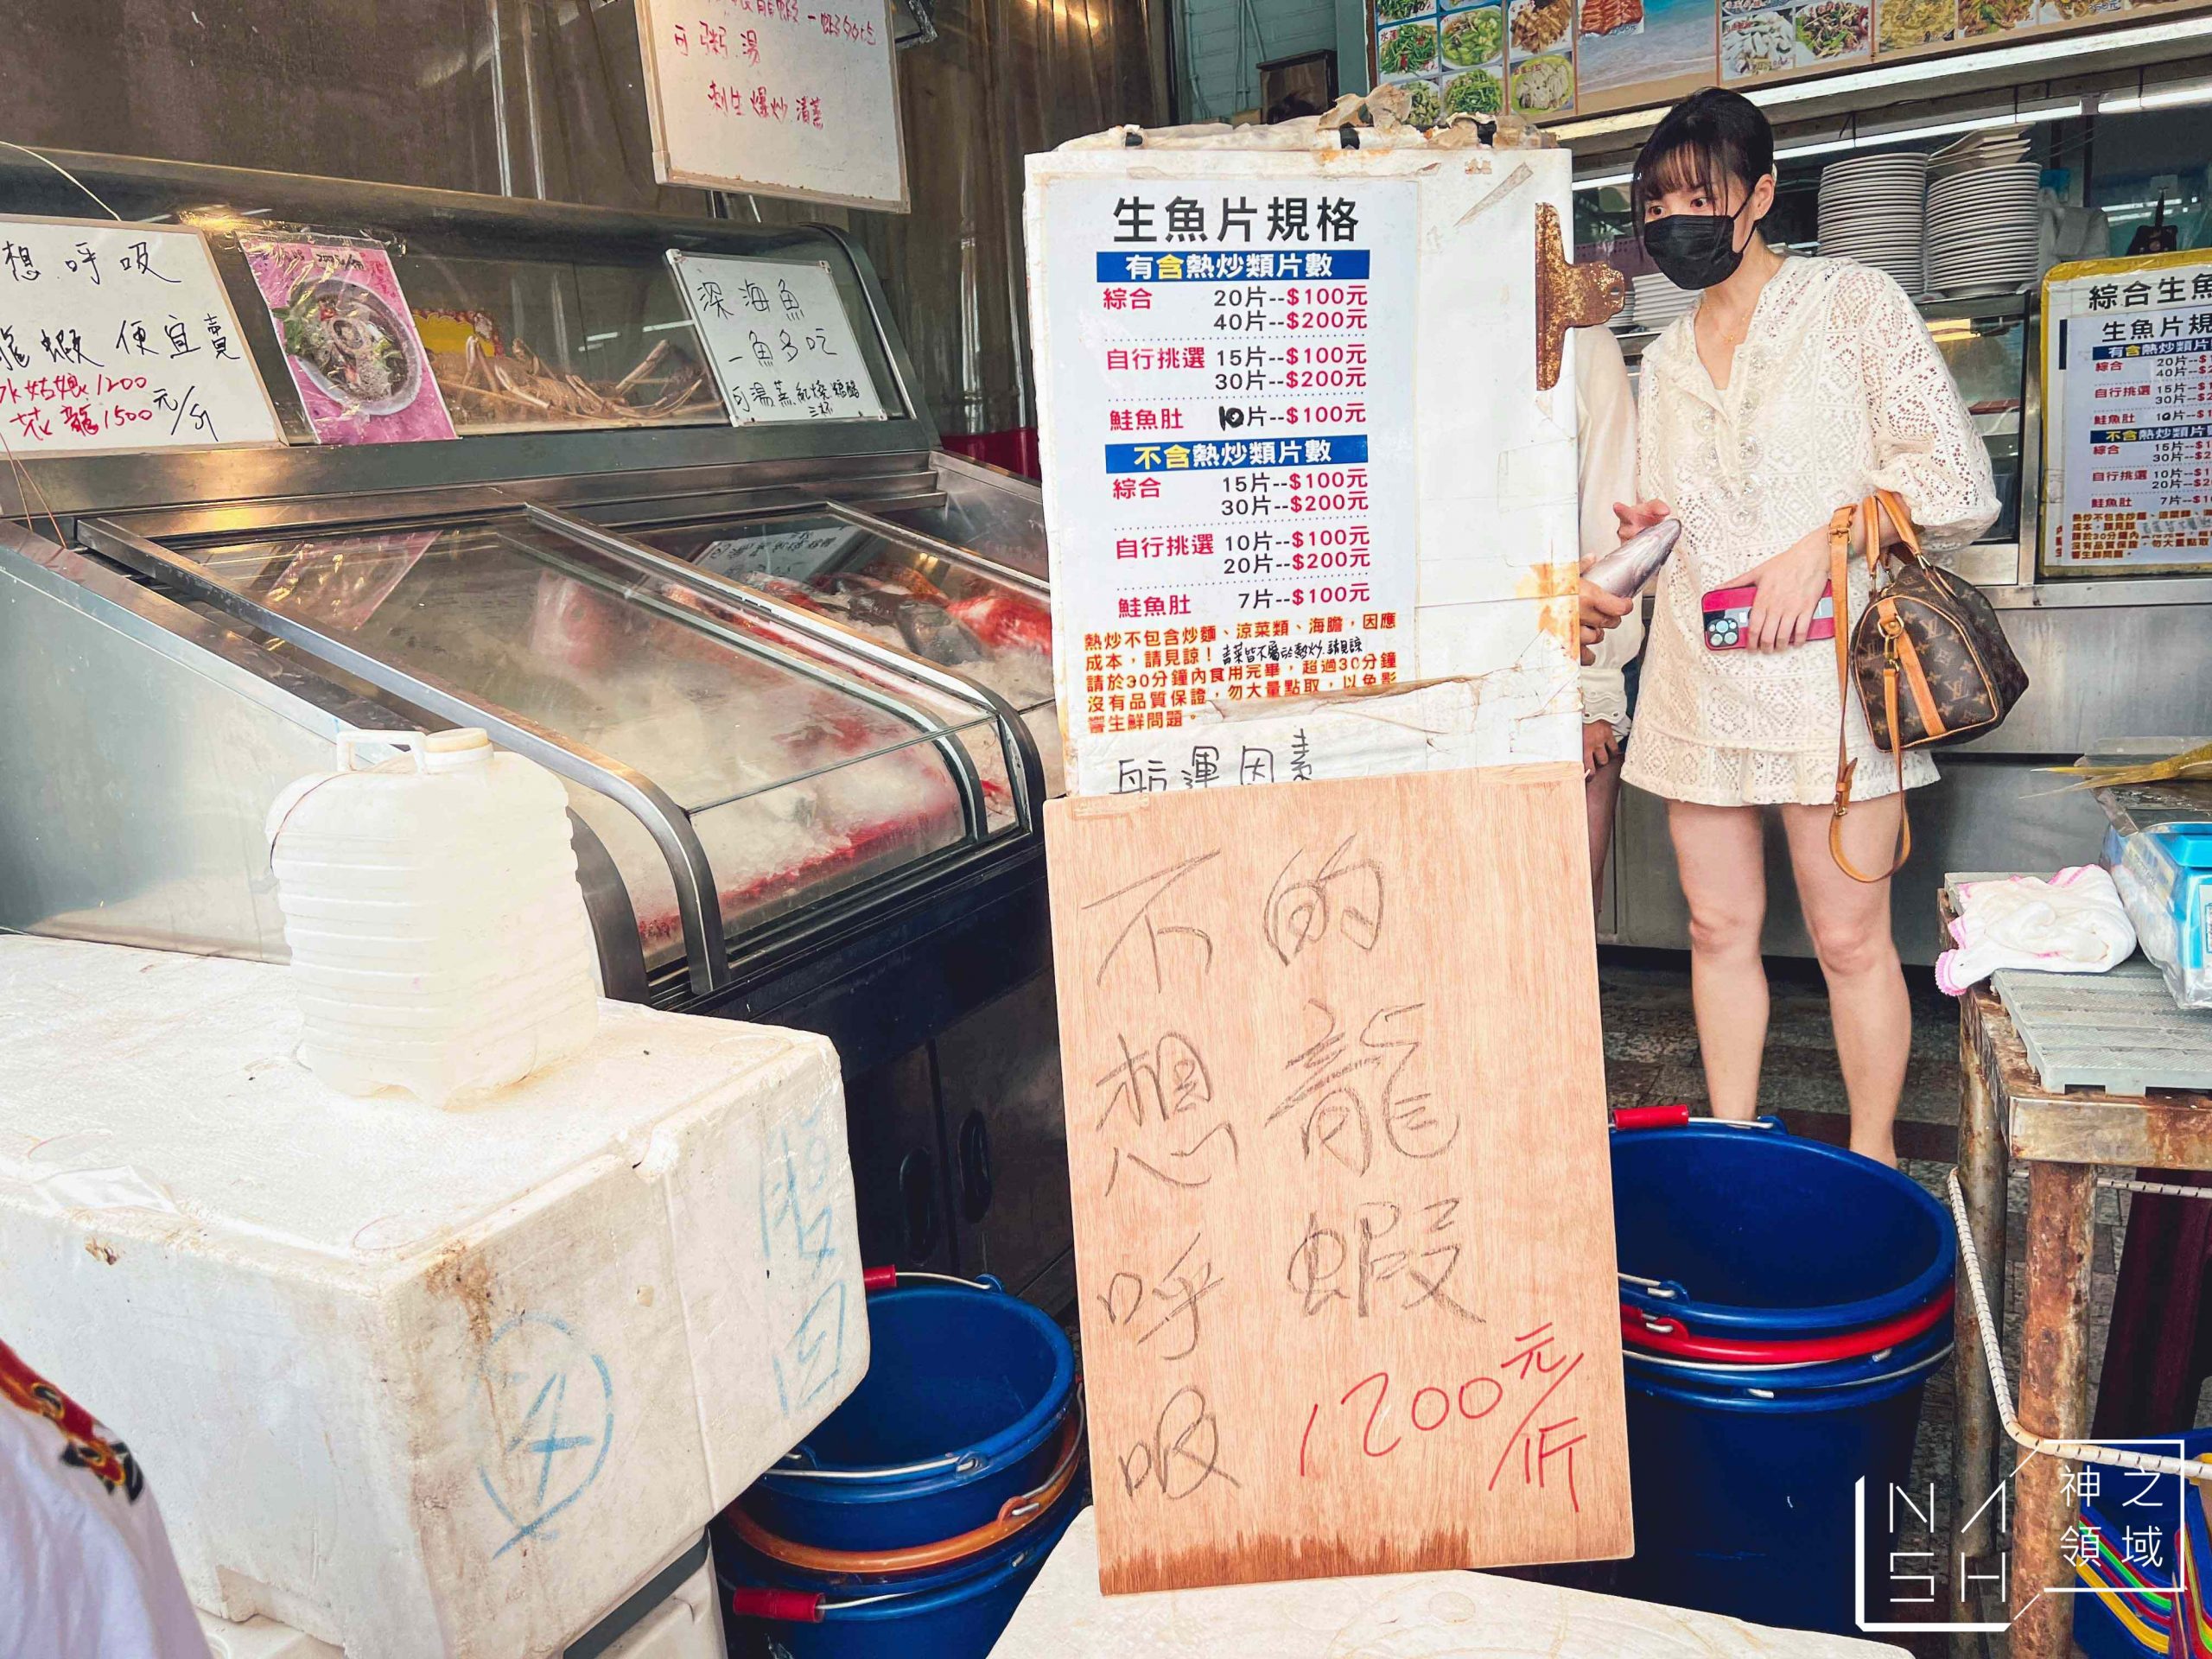 可粥.湯
刺生.爆炒.清蒸
想呼吸
龍蝦便宜賣
冰姑娘1200
花龍1500元/斤
深海魚
一魚多吃
可湯.蒸.紅燒.糖醋
三杯
生魚片規格
有含熱炒類片數
綜合 20片--$100元
40片--$200元
自行挑選 15片--$100元
30片--$200元
鮭魚肚 10片--$100元
不含熱炒類片數
綜合 15片--$100元
30片--$200元
自行挑選 10片--$100元
20片--$200元
鮭魚肚 7片--$100元
熱炒不包含炒麵、涼菜類、海膽，因應
成本，請見諒！青菜皆不屬於熱炒.請見諒
請於30分鐘內食用完畢，超過30分鐘
沒有品質保證，勿大量點取，以免影
響生鮮問題。
航運因素
不想呼吸
的龍蝦
1200元/斤
綜合生魚
生魚片規
有含熱炒類片
綜合 20片--$
40片--$2
自行挑選 15片--$
30片--$2
鮭魚肚 10片--$
不含熱炒類片
綜合 15片--$1
30片--$2
自行挑選 10片--$1
20片--$2
鮭魚肚 7片--$1
NASH
神之
領域